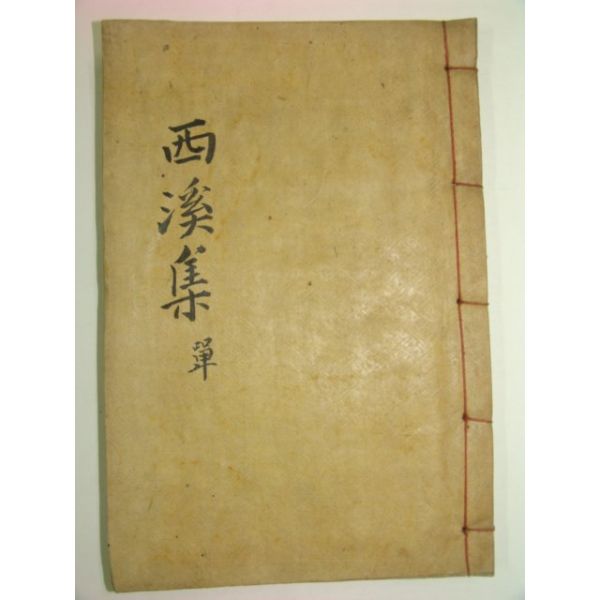 西溪集
單